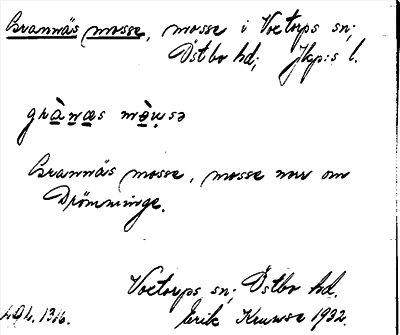 Brannäs mosse, mosse i Voetorps sn;
Östbo hd; Jkp:s l.
grànæs mòwsə
Brannäs mosse, mosse nv om
Drömminge.
Voetorps sn; Östbo hd.
Erik Krause 1932.